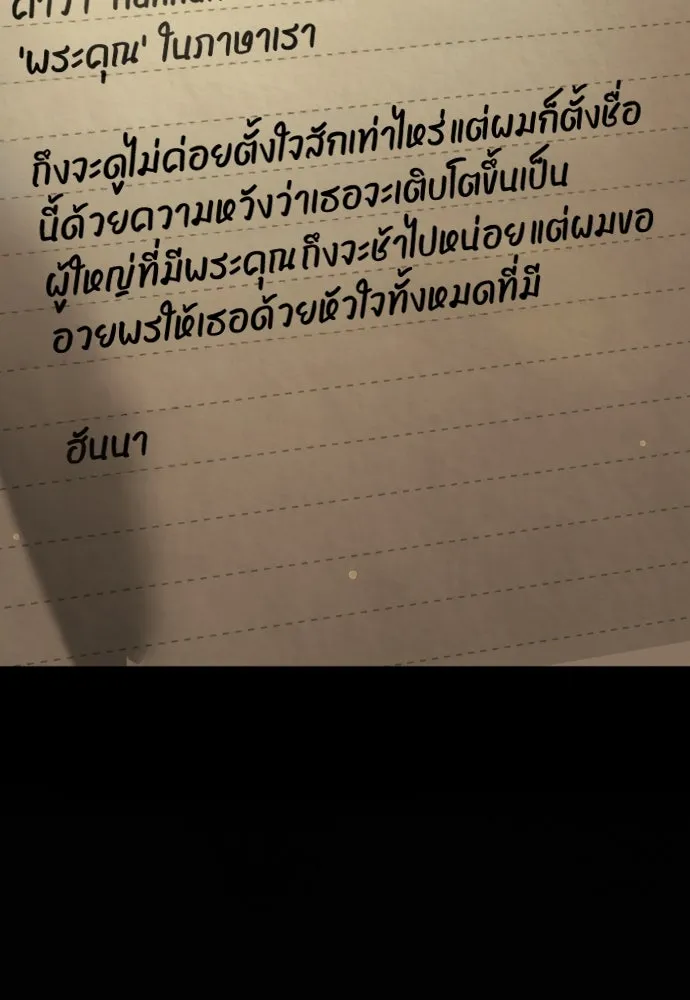 คำว่า
'พระคุณ' ในภาษาเรา
ถึงจะดูไม่ค่อยตั้งใจสักเท่าไหร่ แต่ผมก็ตั้งชื่อ
นี้ด้วยความหวังว่าเธอจะเติบโตขึ้นเป็น
ผู้ใหญ่ที่มีพระคุณ ถึงจะช้าไปหน่อย แต่ผมขอ
อวยพรให้เธอด้วยหัวใจทั้งหมดที่มี
ฮันนา